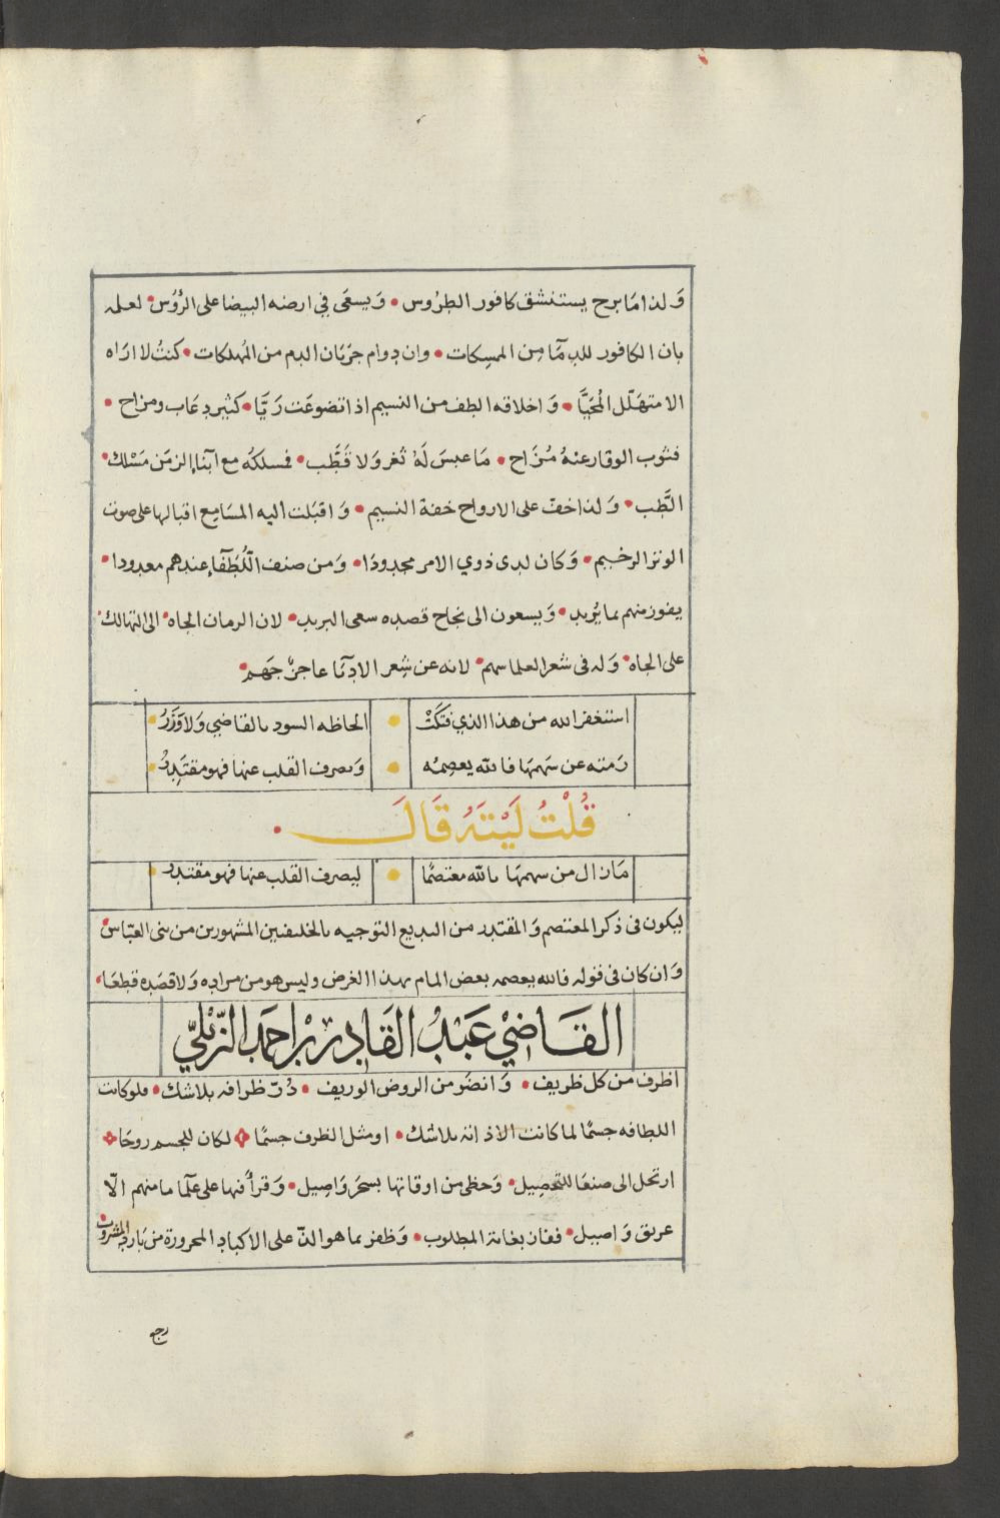 وَلذا مَا برح يستنشق كافور الطِرُوس • وَيسعَى في ارضه البيضا على الرُّؤس • لعلمه
بان الكافور للدِمَآ مِن الممسِكات • وان دوام جرَيَان الدم من المُهلكات • كنتُ لا ارَاه
الا متهَلّل المُحَيَّا • وَاخلاقه الطف من النسيم اذا تضوعَت رَيَّا • كثير دعَاب ومزاح •
فثوب الوقار عنهُ مُنزَاح • مَا عبسَ لهُ ثغر وَلا قَطَّب • فمسلكه مع ابنآء الزمَن مَسْلك •
الطَّب • وَلذا خف على الارواح خفة النسيم • وَاقبَلت اليه المسَامِع اقبالها على صوت
الوتر الرخيم • وَكان لدى ذوي الامر مجدودًا • وَمن صنف اللُّطَفآء عندهم معدودا •
يفوز منهم بما يُريد • وَيسعون الى نجاح قصده سعى البريد • لان الزمان الجاه • الى التهالك •
على الجاه • وَله في شعر العلما سهم • لانه عن شِعر الادبَا عاجزٌ جَهم •
استغفر الله من هذا الذي فتكَتْ • الحاظه السود بالقاضي وَلا وَزَرُ •
رَمته عن سَهمهَا فالله يعصِمُه • وَيصرف القلب عنها فهو مقتَدِرُ •
قُلْتُ لَيْتَهُ قَالَ •
مَا زال من سهمهَا بالله معتصمًا • ليصرف القلب عنها فهو مقتدر •
ليكون في ذكر المعتصم وَالمقتدر من البديع التوجيه بالخليفتين المشهورين من بني العبّاس •
وَان كان في قوله فالله يعصمه بعض المام بهذا الغرض وليس هو من مراده وَلا قصَده قطعًا •
القَاضِيْ عَبْدُ القَادِر بْن احمَد النّزِيْليّ
اظرف من كل ظريف • وَانضَر من الروض الوريف • دُرّ ظرافه بلا شك • فلو كانت
اللطافه جسمًا لما كانت الا ذاته بلا شك • او مثل الظرف جسمًا • لكان للجسم روحَا •
ارتحل الى صنعَا للتحصِيل • وَحظى من اوقاتها بسحَر وَاصِيل • وَقرأ فيها على علَما ما منهم الّا
عريق وَاصيل • ففاز بغاية المطلوب • وَظفر بما هو الذّ على الاكباد المحرورة من بَارد المشروب
رجع